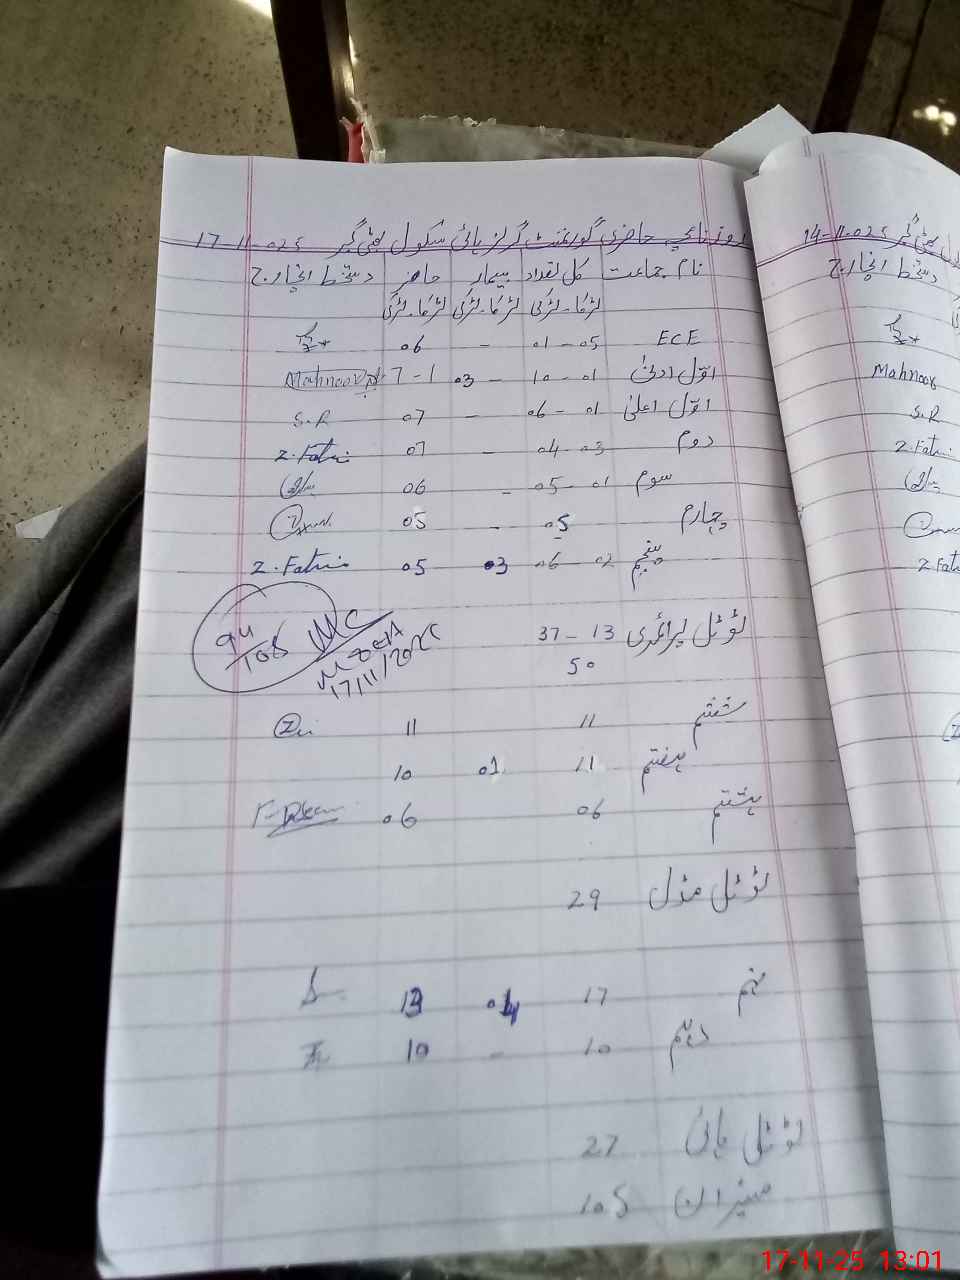 روزنامچہ حاضری گورنمنٹ گرلز ہائی سکول 17-11-025
نام جماعت کل تعداد بیمار حاضر دستخط انچارج
لڑکا۔لڑکی لڑکا۔لڑکی لڑکا۔لڑکی
ECE 01 - 05 - 06
اوّل ادنیٰ 10 - 01 03 - 7 - 1 Mahnoor
اوّل اعلیٰ 06 - 01 - 07 S.R
دوم 04 - 03 - 07 Z.Fatni
سوم 05 - 01 - 06
چہارم 05 - 05
پنجم 06 - 02 03 05 Z.Fatni
ٹوٹل پرائمری 37 - 13
50
94/105 MC
17/11/2025
ششم 11 11
ہفتم 11 01 10
ہشتم 06 06
ٹوٹل مڈل 29
نہم 17 04 13
دہم 10 - 10
ٹوٹل ہائی 27
میزان 105
14-11-025
دستخط انچارج
Mahnoor
S.R
Z.Fatni
Z.Fat
17-11-25 13:01